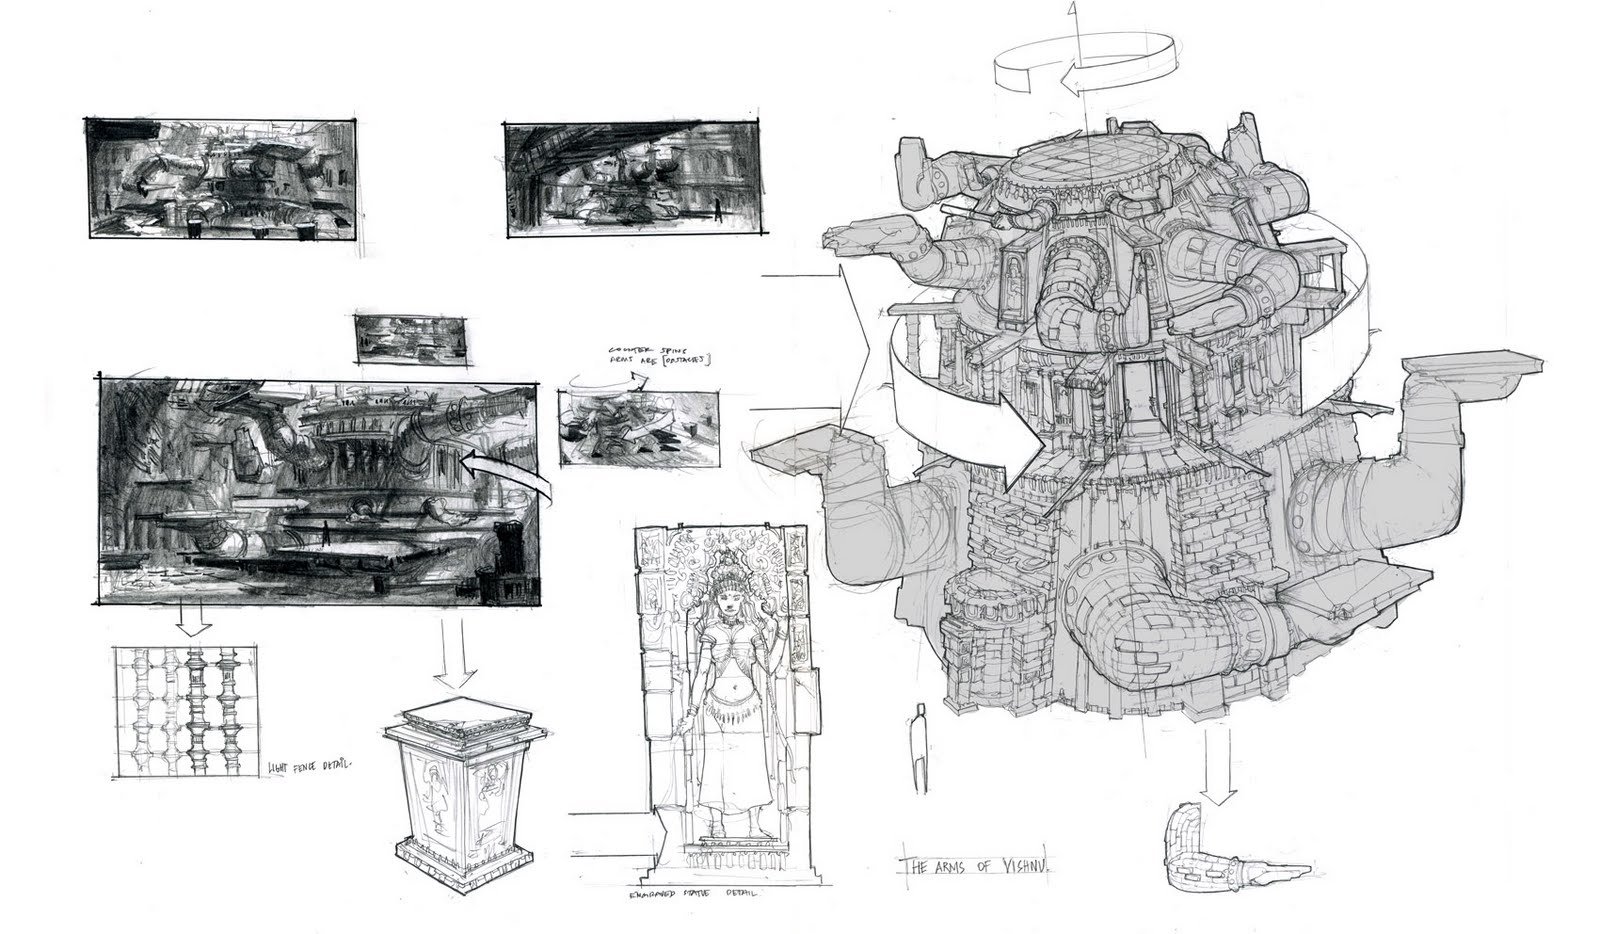 COUNTER SPINS
ARMS ARE [OBSTACLES]
LIGHT FENCE DETAIL.
ENGRAVED STATUE DETAIL.
THE ARMS OF VISHNU.